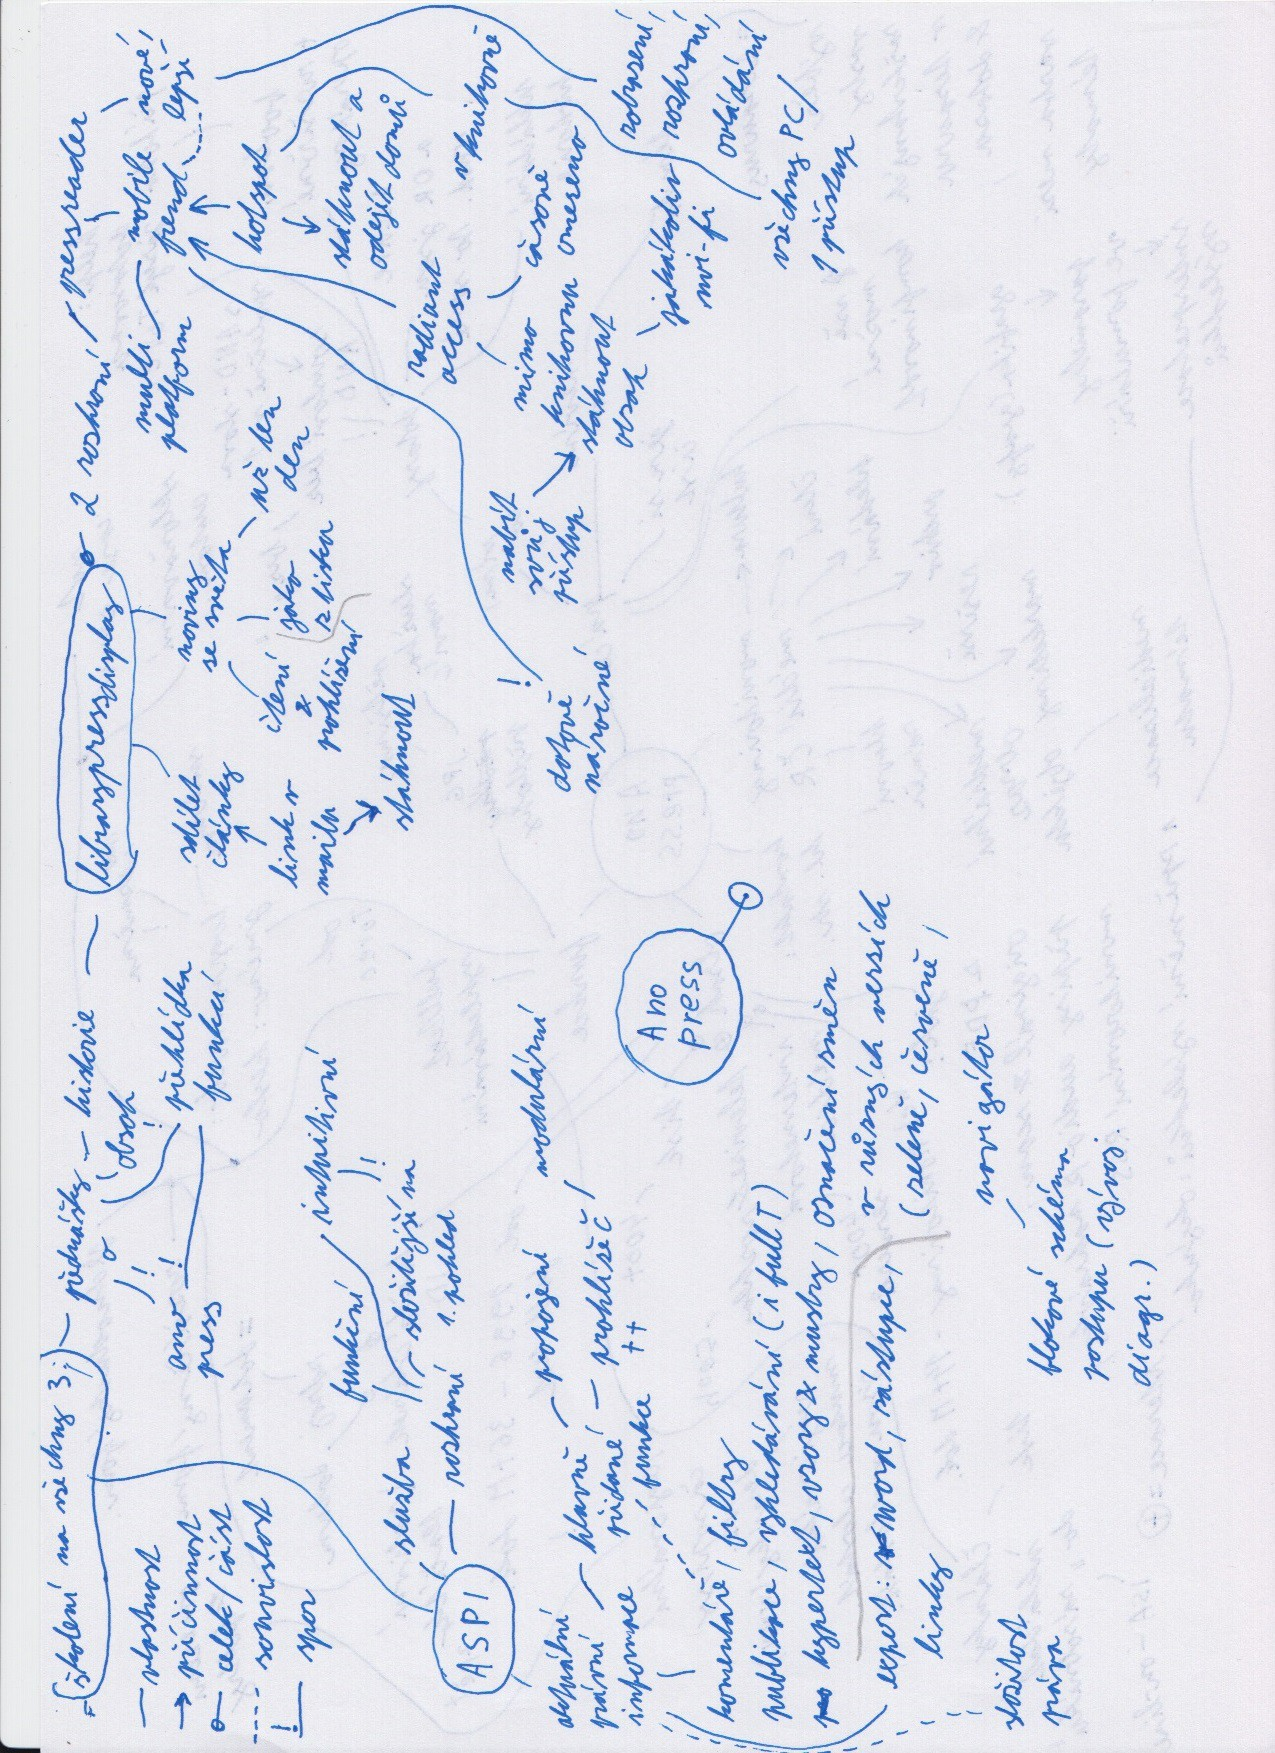 školení na všechny 3;
přednášky
historie
obsah
přehlídka
funkcí
ano
press
— vlastnost
→ příčinnost
o— celek/část
---- souvislost
!— spor
librarypressdisplay
2 rozhraní
pressreader
multi
platform
mobile
friend
nové,
lepší
hotspot
stáhnout a
odejít domů
v knihovně
noviny
se světa
než ten
den
čtení
&
prohlížení
jako
z tisku
sdílet
články
link v
mailu
stáhnout
radiant
access
mimo
knihovnu
časově
omezeno
stáhnout
obsah
jakákoliv
wi-fi
nabít
svůj
přístup
!
datově
náročné
zobrazení,
rozhraní,
ovládání
všechny PC/
1 přístup
ASPI
služba
rozhraní
funkční
intuitivní
!
složitější na
1. pohled
aktuální
právní
informace
hlavně
přidané
funkce
propojení
prohlížeč
++
modulární
komentáře, filtry
publikace, vyhledávání (i full T)
hypertext, vzory & mustry, označení změn
v různých versích
(zeleně, červeně,
export: word, zástupce,
linky
navigátor
blokové schéma
postupu (vývoj.
diagr.)
složitost
práva
Ano
press